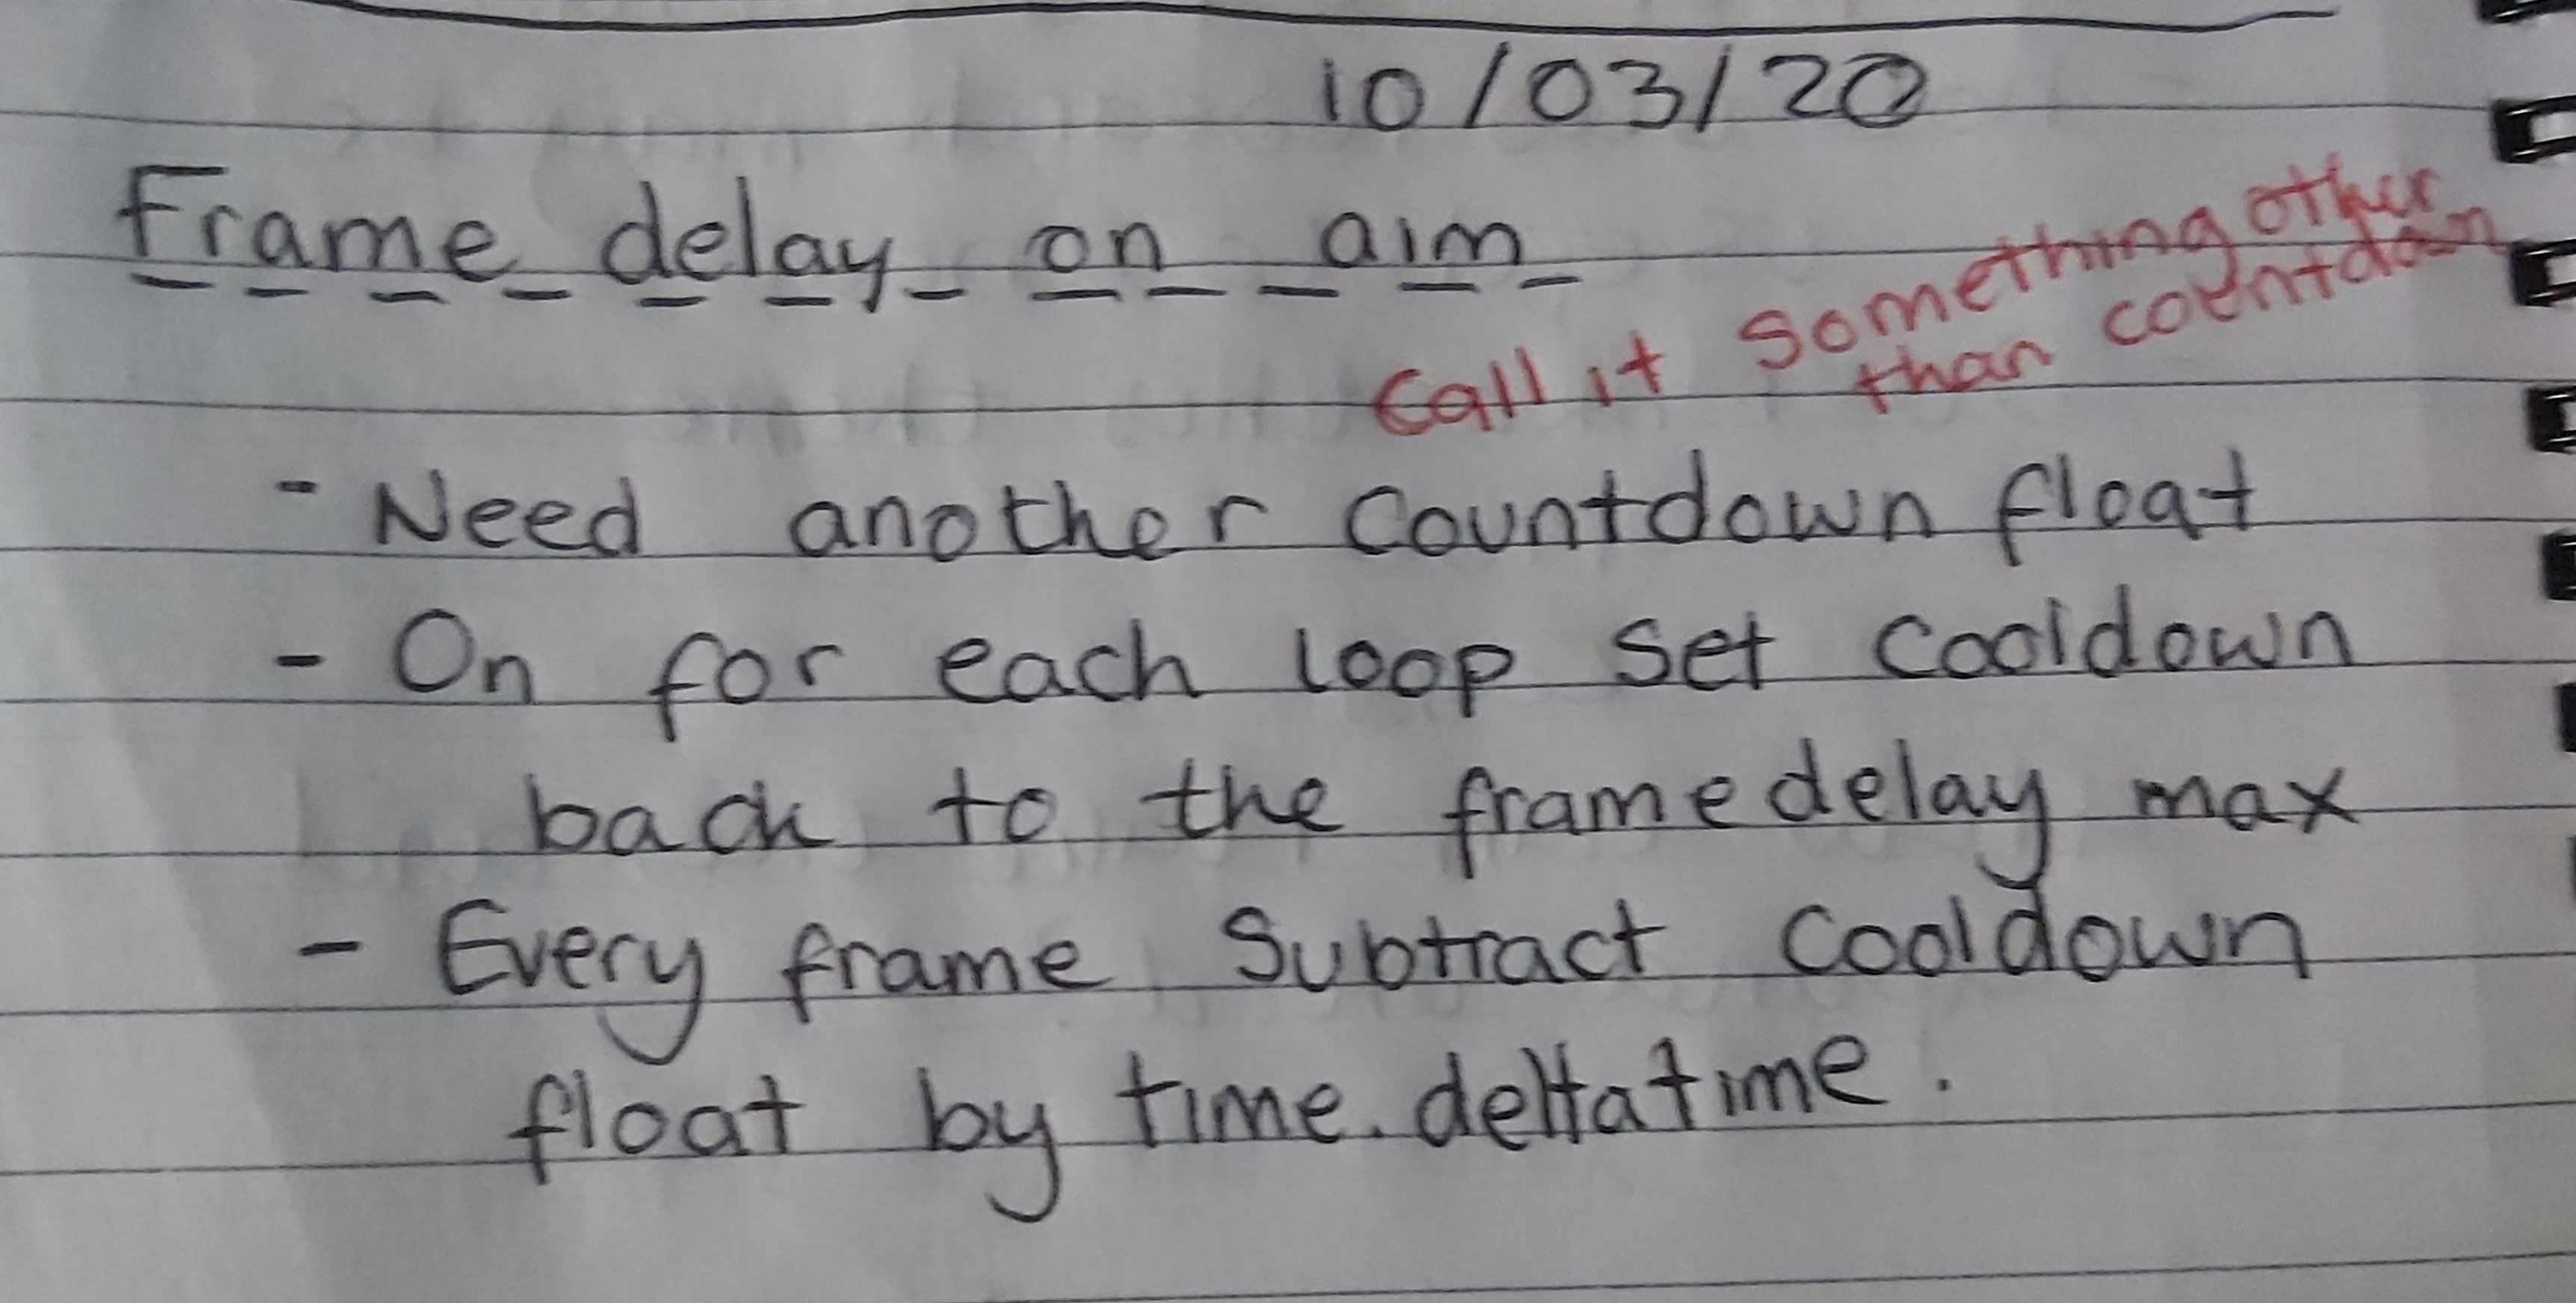 10/03/20
Frame delay on aim
Call it something other
than countdown
- Need another countdown float
- On for each loop set cooldown
back to the framedelay max
- Every frame subtract cooldown
float by time.deltatime.